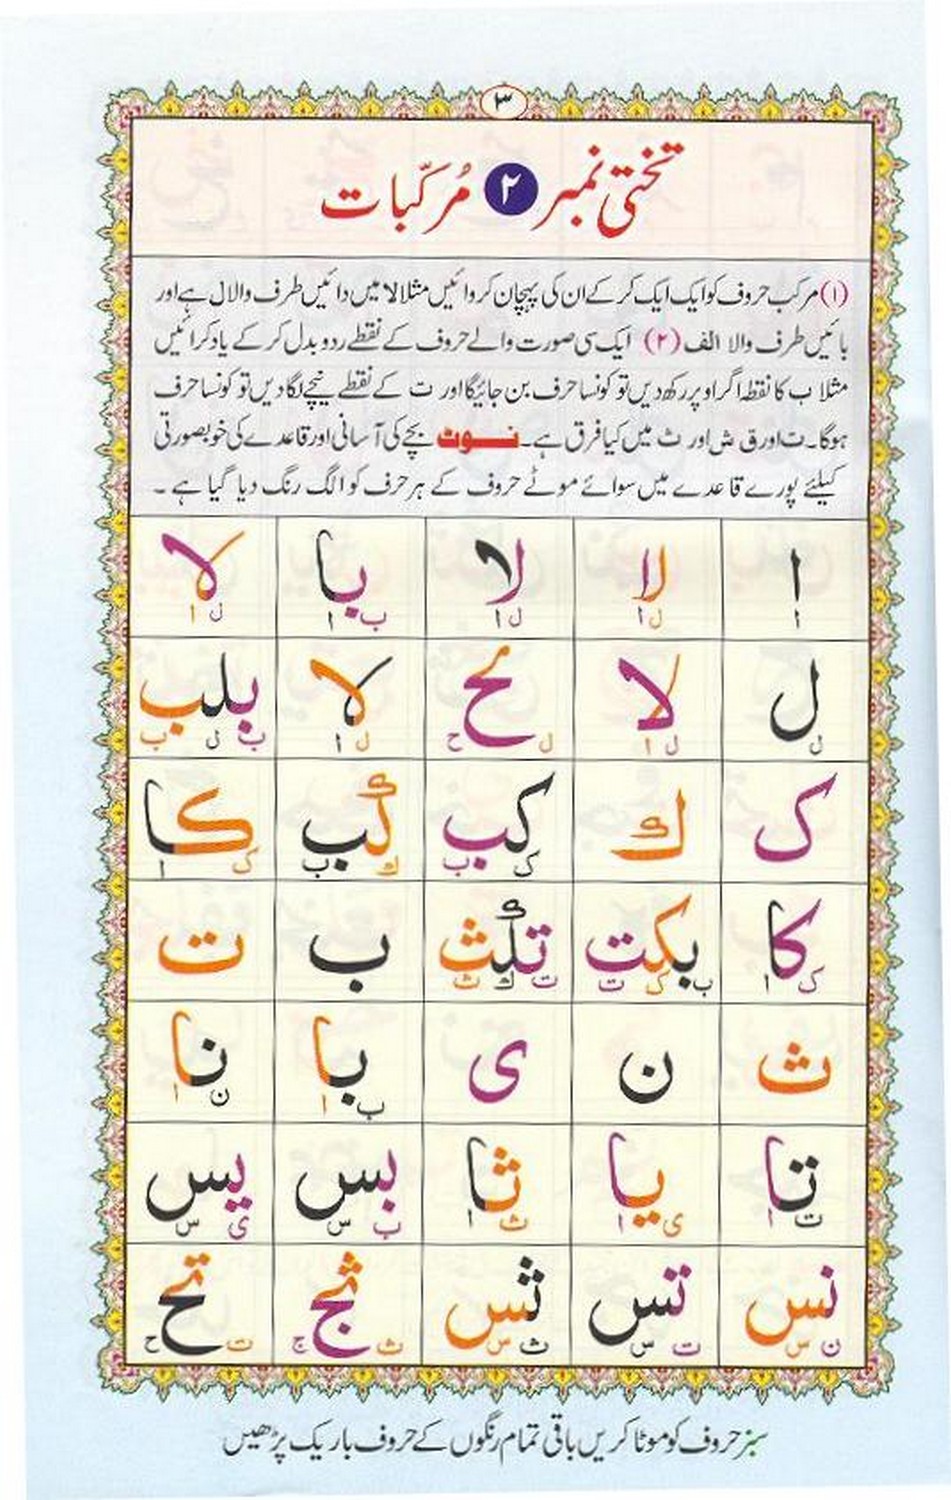 ۳
تختی نمبر ۲ مُرکّبات
(۱) مرکب حروف کو ایک ایک کر کے ان کی پہچان کروائیں مثلا لا میں دائیں طرف والا ل ہے اور
بائیں طرف والا الف (۲) ایک سی صورت والے حروف کے نقطے ردوبدل کر کے یاد کرائیں
مثلا ب کا نقطہ اگر اوپر رکھ دیں تو کونسا حرف بن جائیگا اور ت کے نقطے نیچے لگا دیں تو کونسا حرف
ہوگا۔ ت اور ق ش اور ث میں کیا فرق ہے۔ نوٹ بچے کی آسانی اور قاعدے کی خوبصورتی
کیلئے پورے قاعدے میں سوائے موٹے حروف کے ہر حرف کو الگ رنگ دیا گیا ہے ۔
ا لا لا با لا
ا ل ا ل ا ب ا ل ا
ل لا لح لا بلب
ل ل ا ل ح ل ا ب ل ب
ک ك کب كب کا
ک ب ك ب ک ا
کا بکت تكث ب ت
ک ا ب ک ت ت ك ث
ث ن ی با نا
ب ا ن ا
تا یا ثا بس یس
ت ا ی ا ث ا ب س ی س
نس تس ثس ثج تح
ن س ت س ث س ث ج ت ح
سبز حروف کو موٹا کریں باقی تمام رنگوں کے حروف باریک پڑھیں